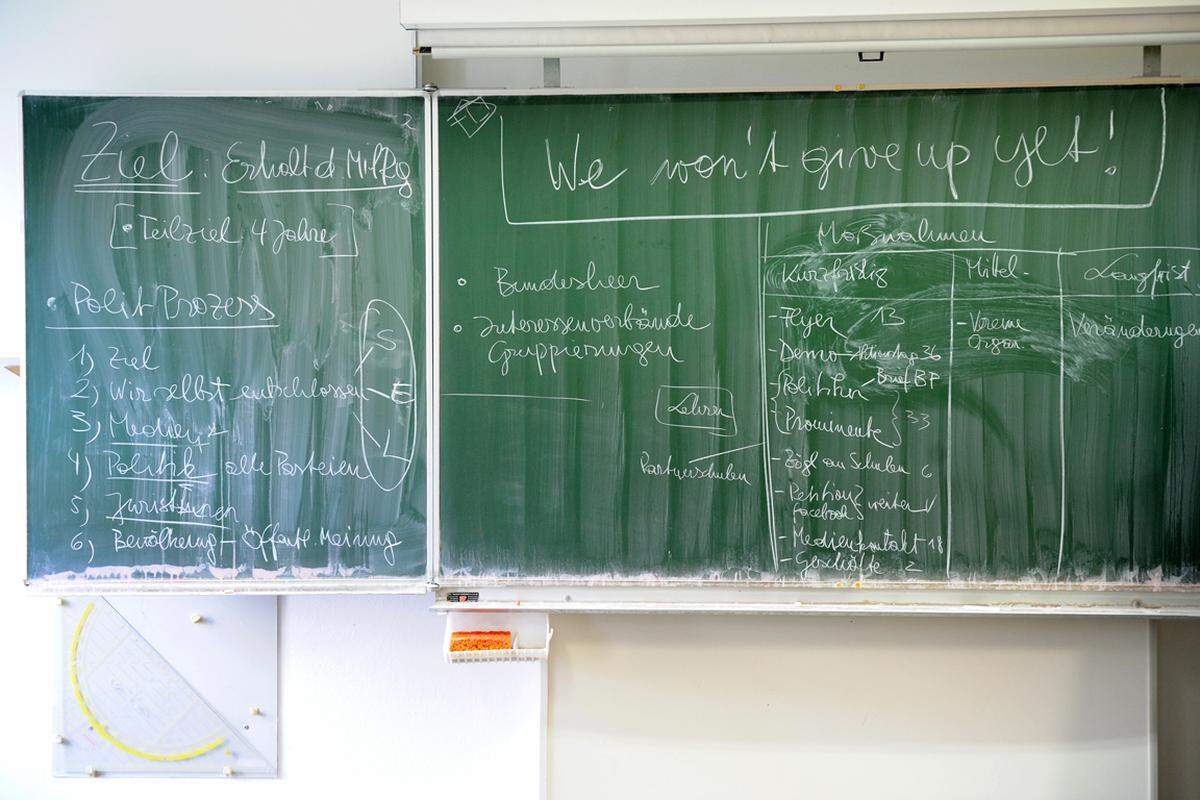 Ziel: Erhalt d. MilRg
[• Teilziel 4 Jahre]
• Polit Prozess
1) Ziel
2) Wir selbst entschlossen
3) Medien
4) Politik – alle Parteien
5) Juristinnen
6) Bevölkerung – Öffentl. Meinung
S
E
L
2
We won't give up yet!
• Bundesheer
• Interessenverbände
Gruppierungen
Lehrer
Partnerschulen
Maßnahmen
Kurzfristig
- Flyer 13
- Demo – Aktionstag 36
Politiker – Brief BP
Prominente } 33
- Zögl an Schulen 6
- Petition } weiter
facebook
- Medienkontakt 18
- Geschäfte 2
Mittel-
- Vereine
Organ.
Langfrist
Veränderungen